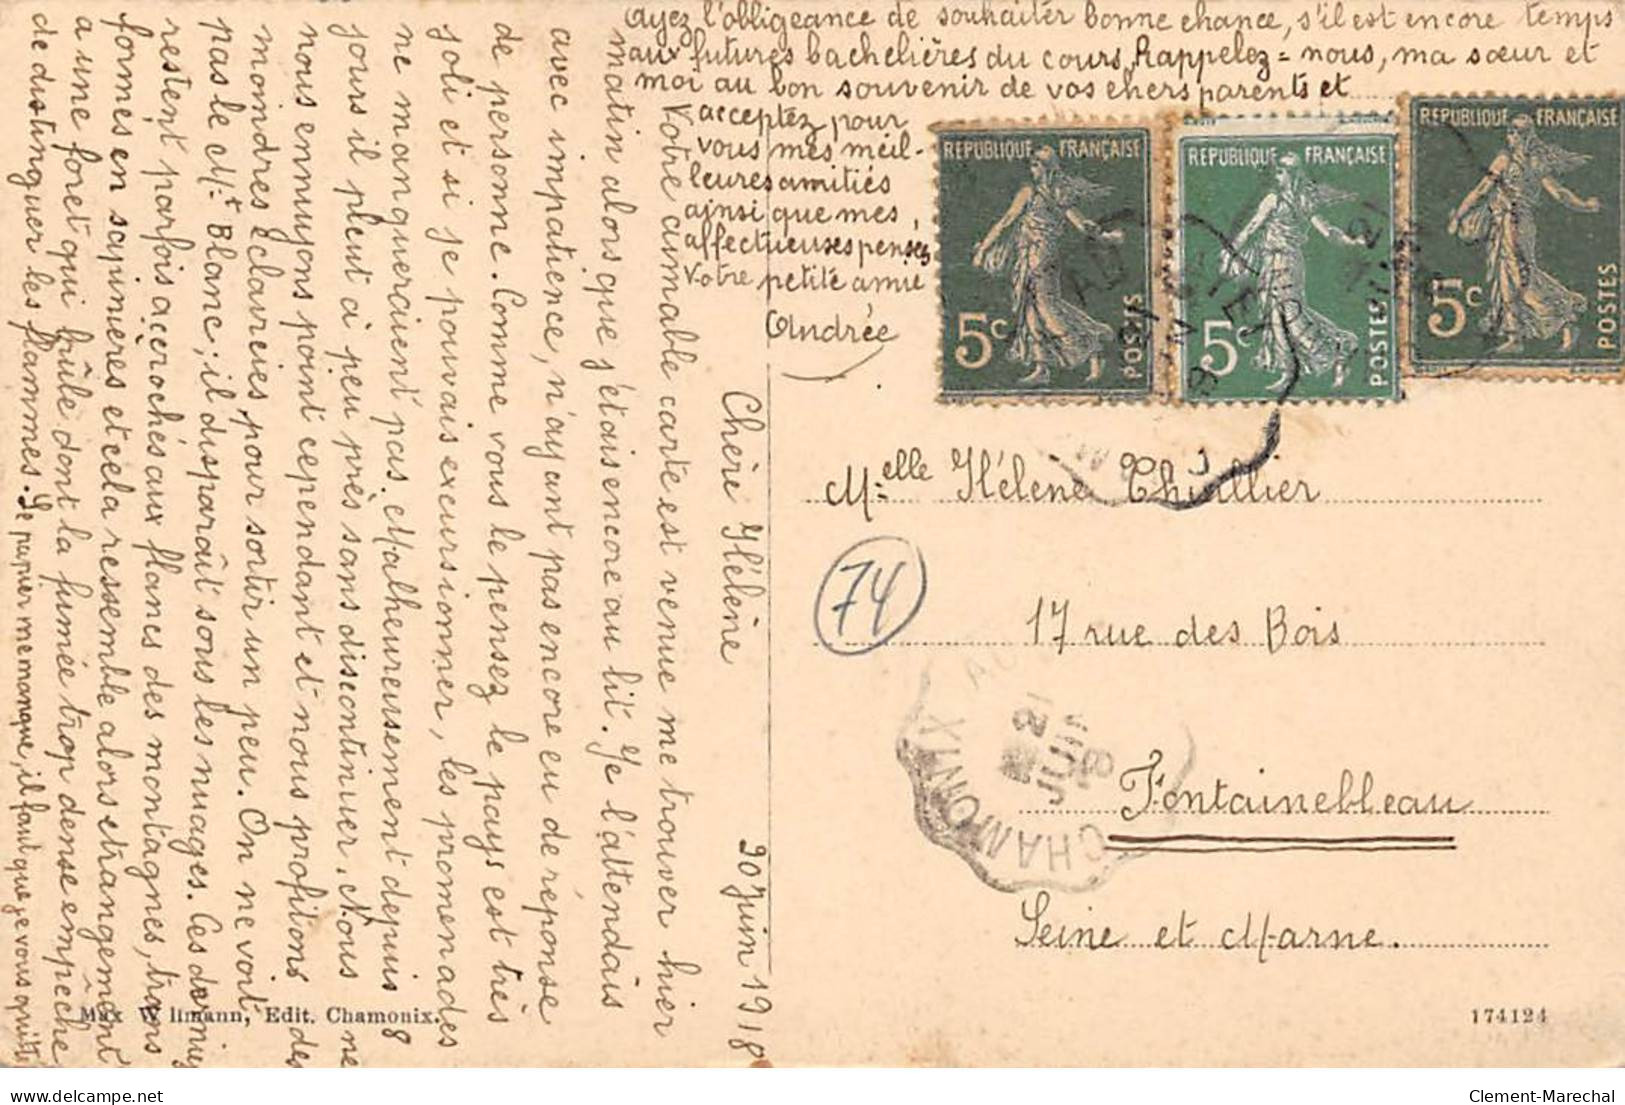 Chère Hélène 20 Juin 1918
Votre aimable carte est venue me trouver hier
matin alors que j'étais encore au lit. Je l'attendais
avec impatience, n'ayant pas encore eu de réponse
de personne. Comme vous le pensez le pays est très
joli et si je pouvais excursionner, les promenades
ne manqueraient pas. Malheureusement depuis 8
jours il pleut à peu près sans discontinuer. Nous ne
nous ennuyons point cependant et nous profitons des
moindres éclaircies pour sortir un peu. On ne voit
pas le Mt Blanc; il disparaît sous les nuages. Ces derniers
restent parfois accrochés aux flancs des montagnes, trans
formés en sapinières et cela ressemble alors étrangement
a une forêt qui brûle dont la fumée trop dense empêche
de distinguer les flammes. Le papier me manque, il faut que je vous quitte
Ayez l'obligeance de souhaiter bonne chance, s'il est encore temps
aux futures bachelières du cours. Rappelez=nous, ma sœur et
moi au bon souvenir de vos chers parents et
acceptez pour
vous mes meil-
leures amitiés
ainsi que mes
affectueuses pensées
Votre petite amie
Andrée
REPUBLIQUE FRANÇAISE
5c POSTES
REPUBLIQUE FRANÇAISE
5c POSTES
REPUBLIQUE FRANÇAISE
5c POSTES
Melle Hélène Thuillier
17 rue des Bois
Fontainebleau
Seine et Marne.
74
CHAMONIX
21
JUIN
18
Max Wllmann, Edit. Chamonix.
174124
delcampe.net
Clement-Marechal